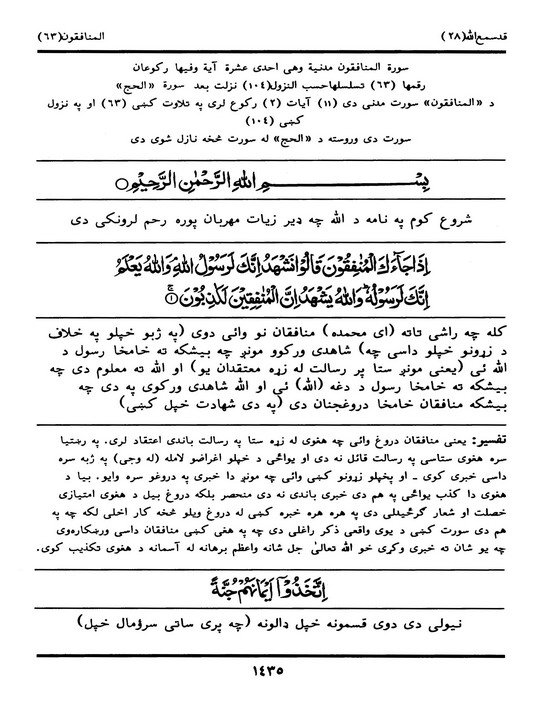 قدسمع الله (۲۸)
المنافقون (۶۳)
سورة المنافقون مدنية وهى احدى عشرة آية وفيها ركوعان
رقمها (۶۳) تسلسلهاحسب النزول (۱۰٤) نزلت بعد سورة «الحج»
د «المنافقون» سورت مدنی دی (۱۱) آیات (۲) رکوع لری په تلاوت کښی (۶۳) او په نزول
کښی (۱۰٤)
سورت دی وروسته د «الحج» له سورت څخه نازل شوی دی
بِسْمِ اللهِ الرَّحْمٰنِ الرَّحِيْمِ
شروع کوم په نامه د الله چه ډیر زیات مهربان پوره رحم لرونکی دی
اِذَا جَآءَكَ الْمُنٰفِقُوْنَ قَالُوْا نَشْهَدُ اِنَّكَ لَرَسُوْلُ اللهِ وَاللهُ يَعْلَمُ
اِنَّكَ لَرَسُوْلُهٗ وَاللهُ يَشْهَدُ اِنَّ الْمُنٰفِقِيْنَ لَكٰذِبُوْنَ ۱
کله چه راشی تاته (ای محمده) منافقان نو وائی دوی (په ژبو خپلو په خلاف
د زړونو خپلو داسی چه) شاهدی ورکوو مونږ چه بیشکه ته خامخا رسول د
الله ئی (یعنی مونږ ستا پر رسالت له زړه معتقدان یو) او الله ته معلوم دی چه
بیشکه ته خامخا رسول د دغه (الله) ئی او الله شاهدی ورکوی په دی چه
بیشکه منافقان خامخا دروغجنان دی (په دی شهادت خپل کښی)
تفسیر: یعنی منافقان دروغ وائی چه هغوی له زړه ستا په رسالت باندی اعتقاد لری. په رښتیا
سره هغوی ستاسی په رسالت قائل نه دی او یواځی د خپلو اغراضو لامله (له وجی) په ژبه سره
داسی خبری کوی ـ او پخپلو زړونو کښی وائی چه مونږ دا خبری په دروغو سره وایو. بیا د
هغوی دا کذب یواځی په هم دی خبری باندی نه دی منحصر بلکه دروغ بیل د هغوی امتیازی
خصلت او شعار ګرځیدلی دی په هره هره خبره کښی له دروغ ویلو څخه کار اخلی لکه چه په
هم دی سورت کښی د یوی واقعی ذکر راغلی دی چه په هغی کښی منافقان داسی ورښکارهوی
چه یو شان ته خبری وکری خو الله تعالیٰ جل شانه واعظم برهانه له آسمانه د هغوی تکذیب کوی.
اِتَّخَذُوْٓا اَيْمَانَهُمْ جُنَّةً
نیولی دی دوی قسمونه خپل ډالونه (چه پری ساتی سرؤمال خپل)
۱٤۳۵